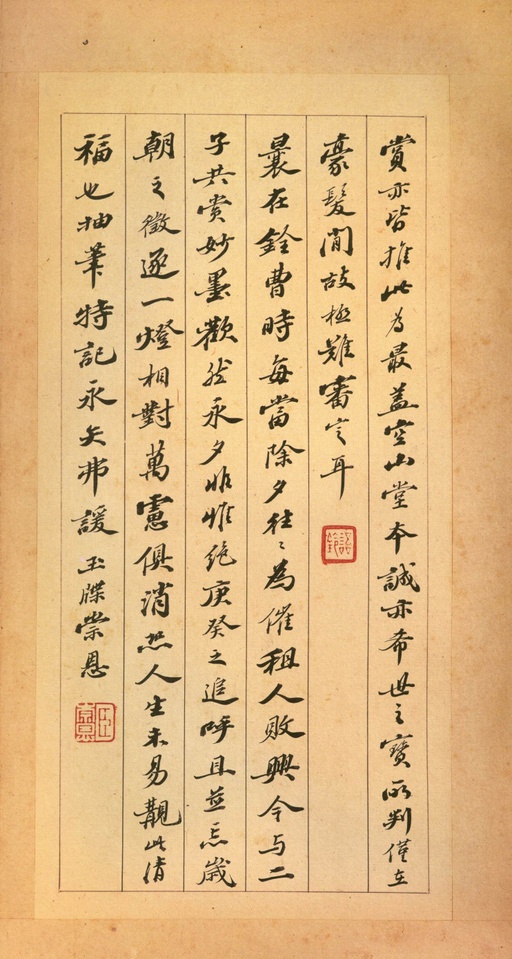 賞亦皆推此為最蓋空山堂本誠亦希世之寶所判僅在
豪髮間故極難審定耳
曩在銓曹時每當除夕往〻為催租人敗興今与二
子共賞妙墨歡然永夕非惟絕庚癸之追呼且並忘歲
朝之徵逐一燈相對萬慮俱消然人生未易覯此清
福也抽筆特記永矢弗諼玉牒崇恩